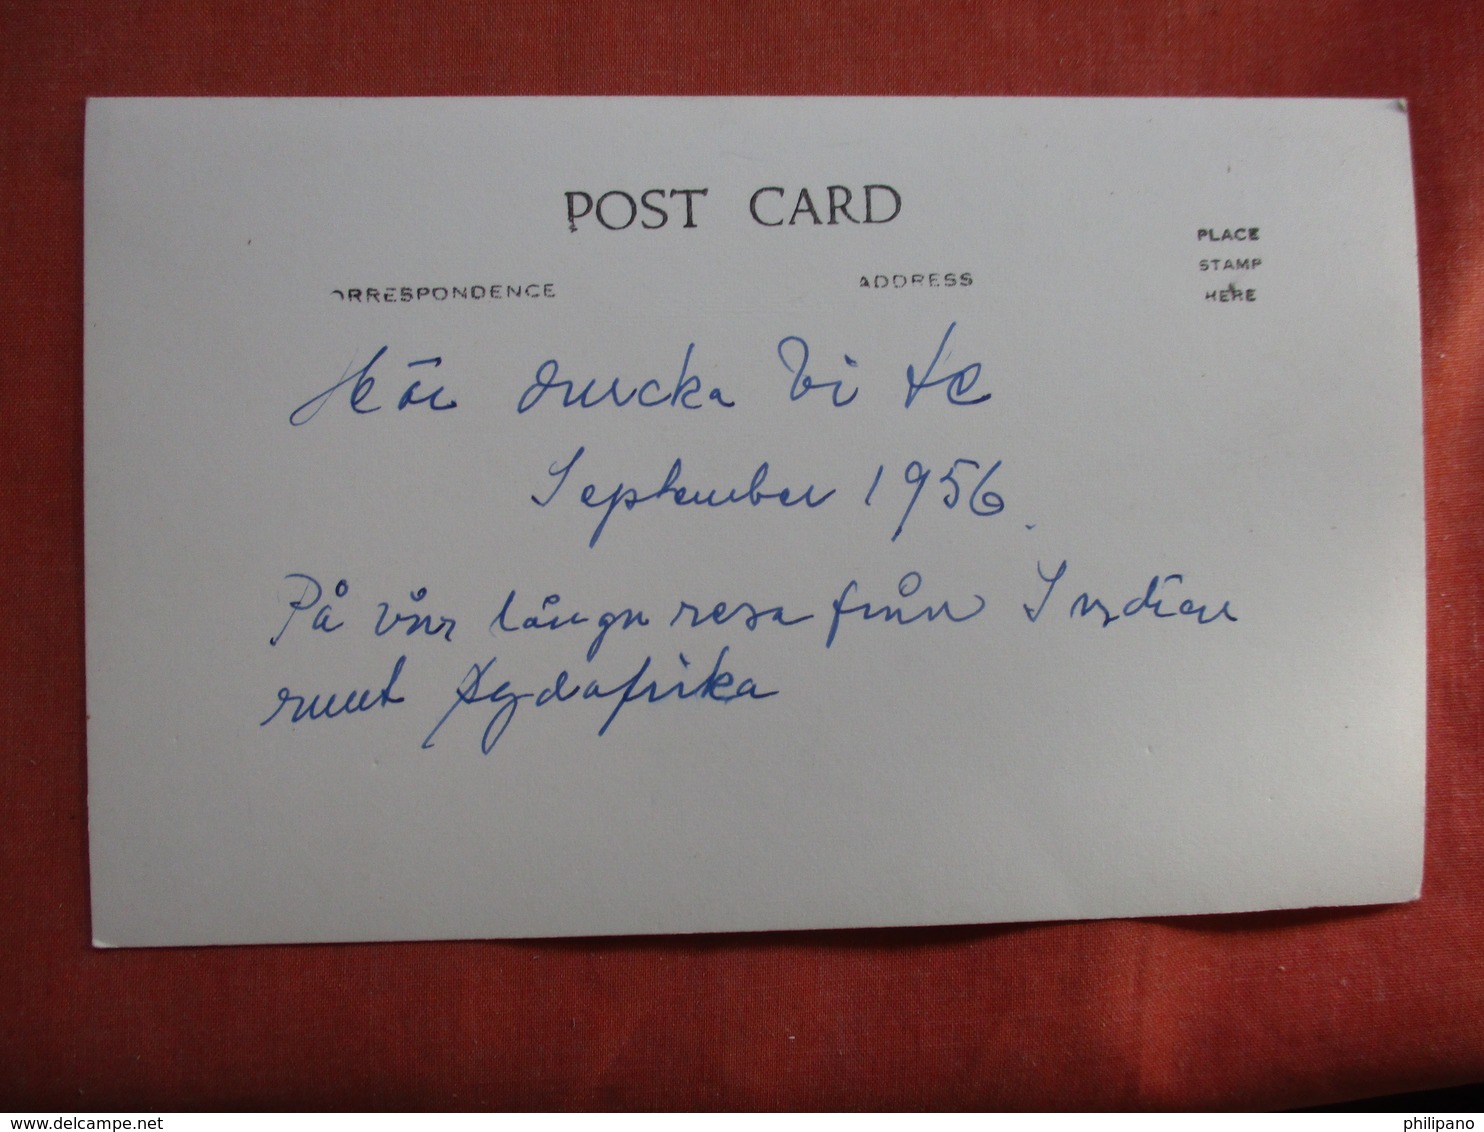 POST CARD
PLACE
STAMP
HERE
ORRESPONDENCE
ADDRESS
Här drucka Vi te
September 1956.
På vår långa resa från Indien
runt Sydafrika
philipano